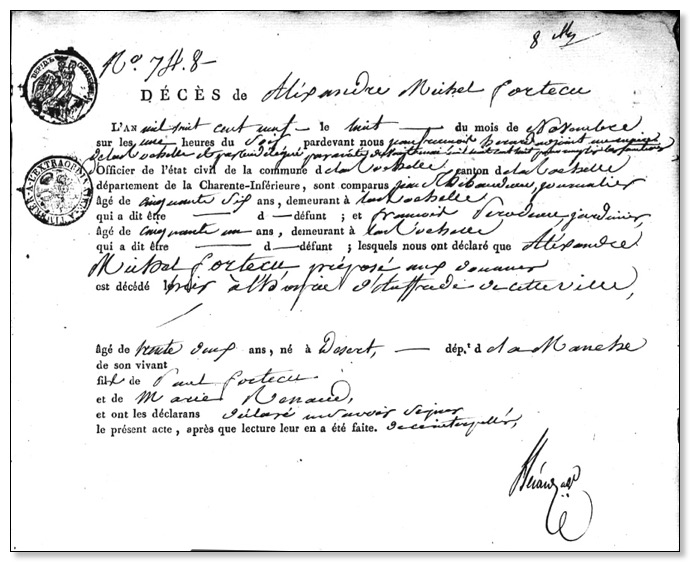 8 9bre
No. 748
DÉCÈS de Aléxandre Michel Fortecu
L'AN mil huit cent neuf le huit du mois de Novembre
sur les une heures du Soir pardevant nous jean francois adjoint au maire
de la Rochelle et par lui délégué par arrêté du
Officier de l'état civil de la commune de la Rochelle canton de la Rochelle
département de la Charente-Inférieure, sont comparus jean Thibaudeau, journalier
âgé de cinquante Six ans, demeurant à la Rochelle
qui a dit être — d — défunt ; et francois jardinier,
âgé de cinquante un ans, demeurant à la Rochelle
qui a dit être — d — défunt ; lesquels nous ont déclaré que Aléxandre
Michel Fortecu, préposé aux douanes
est décédé hier à l'hospice d'Auffredi de cette ville,
âgé de trente deux ans, né à Desert, — dép.t de la Manche
de son vivant
fils de Paul Fortecu
et de Marie Renaud,
et ont les déclarans déclaré ne savoir signer
le présent acte, après que lecture leur en a été faite. de ce interpellés,